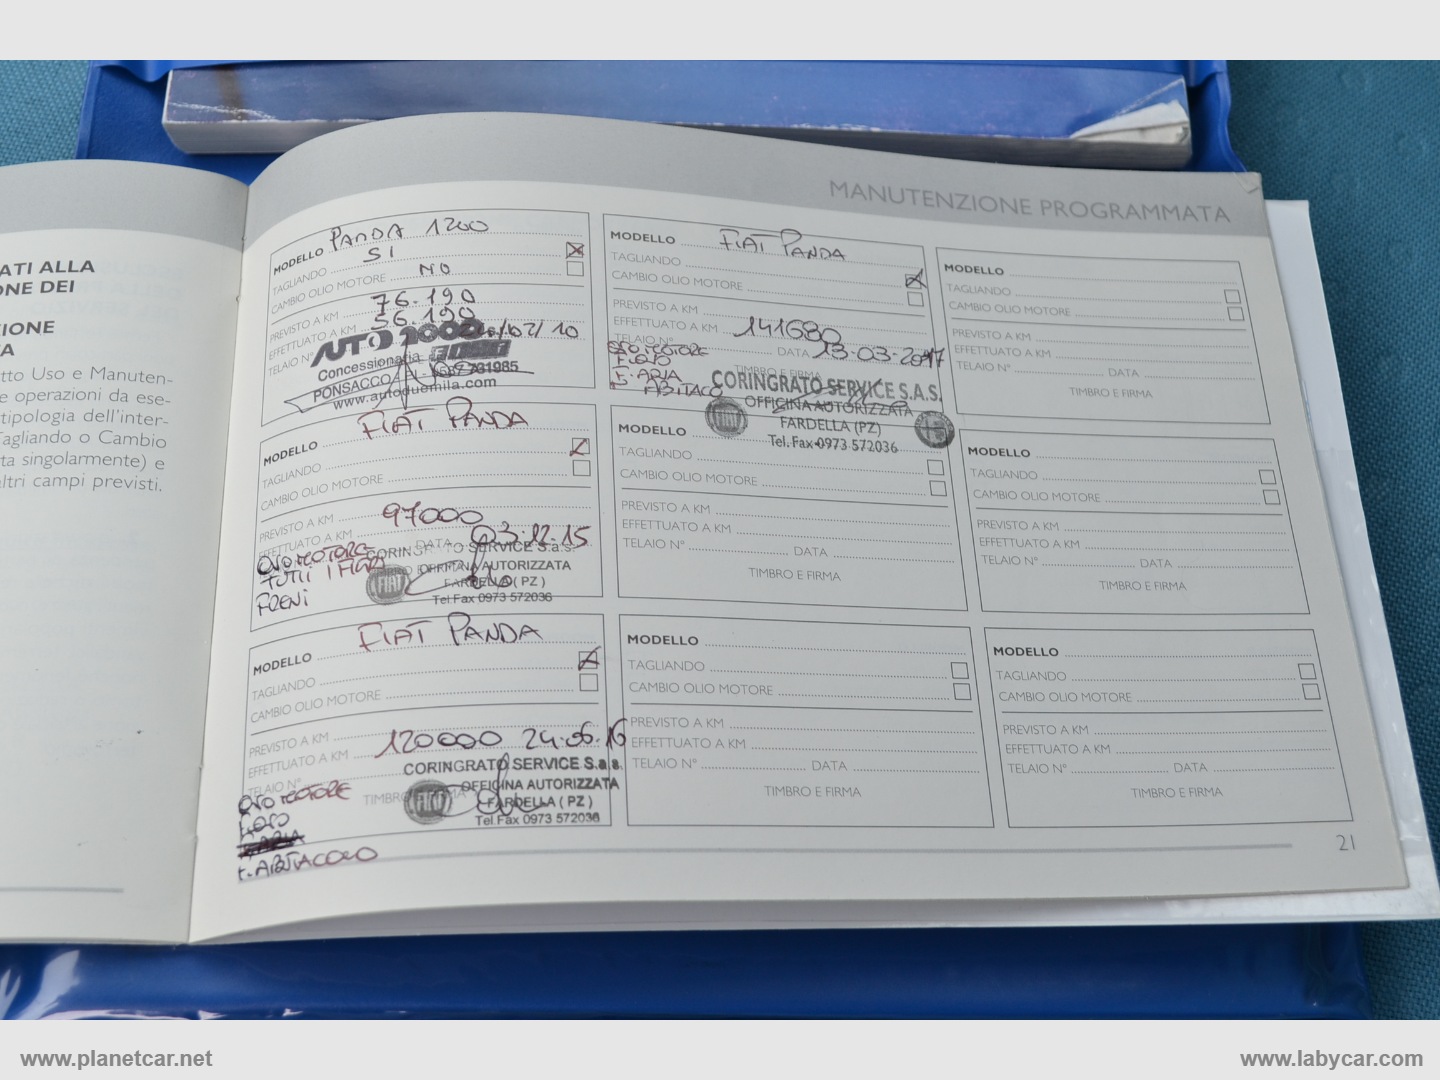 MANUTENZIONE PROGRAMMATA
ATI ALLA
ONE DEI
ZIONE
TA
tto Uso e Manuten-
e operazioni da ese-
tipologia dell'inter-
Tagliando o Cambio
ta singolarmente) e
altri campi previsti.
MODELLO PANDA 1200
TAGLIANDO SI
CAMBIO OLIO MOTORE NO
PREVISTO A KM 76.190
EFFETTUATO A KM 56.190
TELAIO N° /02/10
AUTO 2000
Concessionaria
PONSACCO
www.autoduemila.com
MODELLO FIAT PANDA
TAGLIANDO
CAMBIO OLIO MOTORE
PREVISTO A KM 97000
EFFETTUATO A KM DATA 03.12.15
OLIO MOTORE
TUTTI I FILTRI
FRENI
CORINGRATO SERVICE S.a.s.
OFFICINA AUTORIZZATA
FARDELLA ( PZ )
Tel Fax 0973 572036
FIAT
MODELLO FIAT PANDA
TAGLIANDO
CAMBIO OLIO MOTORE
PREVISTO A KM
EFFETTUATO A KM 120000 24.06.16
TELAIO N°
OLIO MOTORE
F. ABITACOLO
TIMBRO E FIRMA
CORINGRATO SERVICE S.a.s.
OFFICINA AUTORIZZATA
FARDELLA ( PZ )
Tel Fax 0973 572036
FIAT
MODELLO FIAT PANDA
TAGLIANDO
CAMBIO OLIO MOTORE
PREVISTO A KM
EFFETTUATO A KM 141680
TELAIO N° DATA 13-03-2017
OLIO MOTORE
F. OLIO
F. ARIA
F. ABITACO
TIMBRO E FIRMA
CORINGRATO SERVICE S.A.S.
OFFICINA AUTORIZZATA
FARDELLA (PZ)
Tel. Fax 0973 572036
MODELLO
TAGLIANDO
CAMBIO OLIO MOTORE
PREVISTO A KM
EFFETTUATO A KM
TELAIO N° DATA
TIMBRO E FIRMA
MODELLO
TAGLIANDO
CAMBIO OLIO MOTORE
PREVISTO A KM
EFFETTUATO A KM
TELAIO N° DATA
TIMBRO E FIRMA
MODELLO
TAGLIANDO
CAMBIO OLIO MOTORE
PREVISTO A KM
EFFETTUATO A KM
TELAIO N° DATA
TIMBRO E FIRMA
MODELLO
TAGLIANDO
CAMBIO OLIO MOTORE
PREVISTO A KM
EFFETTUATO A KM
TELAIO N° DATA
TIMBRO E FIRMA
MODELLO
TAGLIANDO
CAMBIO OLIO MOTORE
PREVISTO A KM
EFFETTUATO A KM
TELAIO N° DATA
TIMBRO E FIRMA
21
www.planetcar.net
www.labycar.com